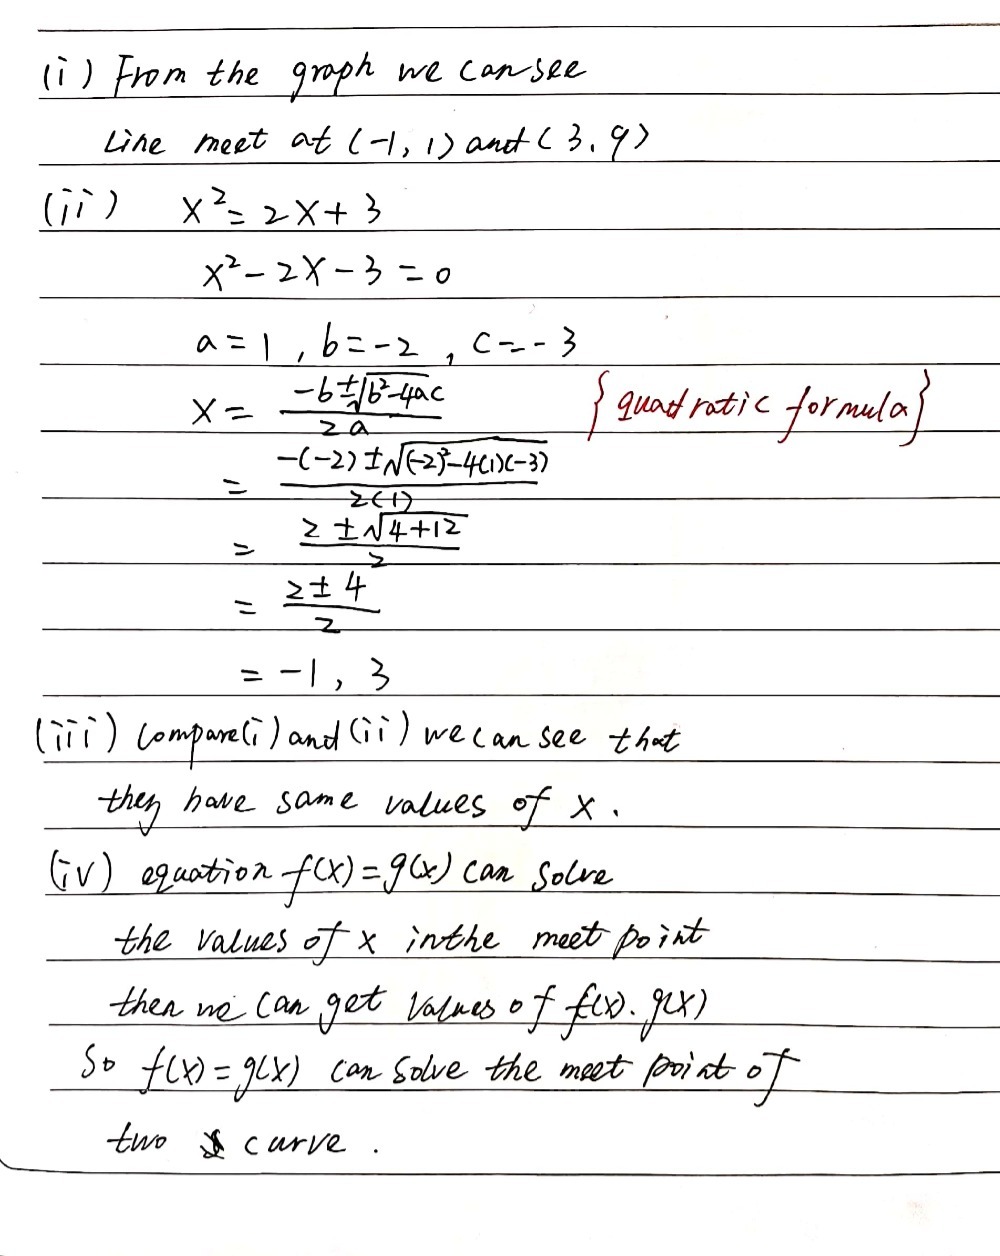 (i) From the graph we can see
Line meet at (-1, 1) and (3, 9)
(ii) x² = 2x + 3
x² - 2x - 3 = 0
a = 1, b = -2, c = -3
x = (-b ± √(b² - 4ac)) / 2a {quadratic formula}
= (-(-2) ± √((-2)² - 4(1)(-3))) / 2(1)
= (2 ± √(4 + 12)) / 2
= (2 ± 4) / 2
= -1, 3
(iii) Compare (i) and (ii) we can see that
they have same values of x.
(iv) equation f(x) = g(x) can solve
the values of x in the meet point
then we can get values of f(x). g(x)
So f(x) = g(x) can solve the meet point of
two curve.